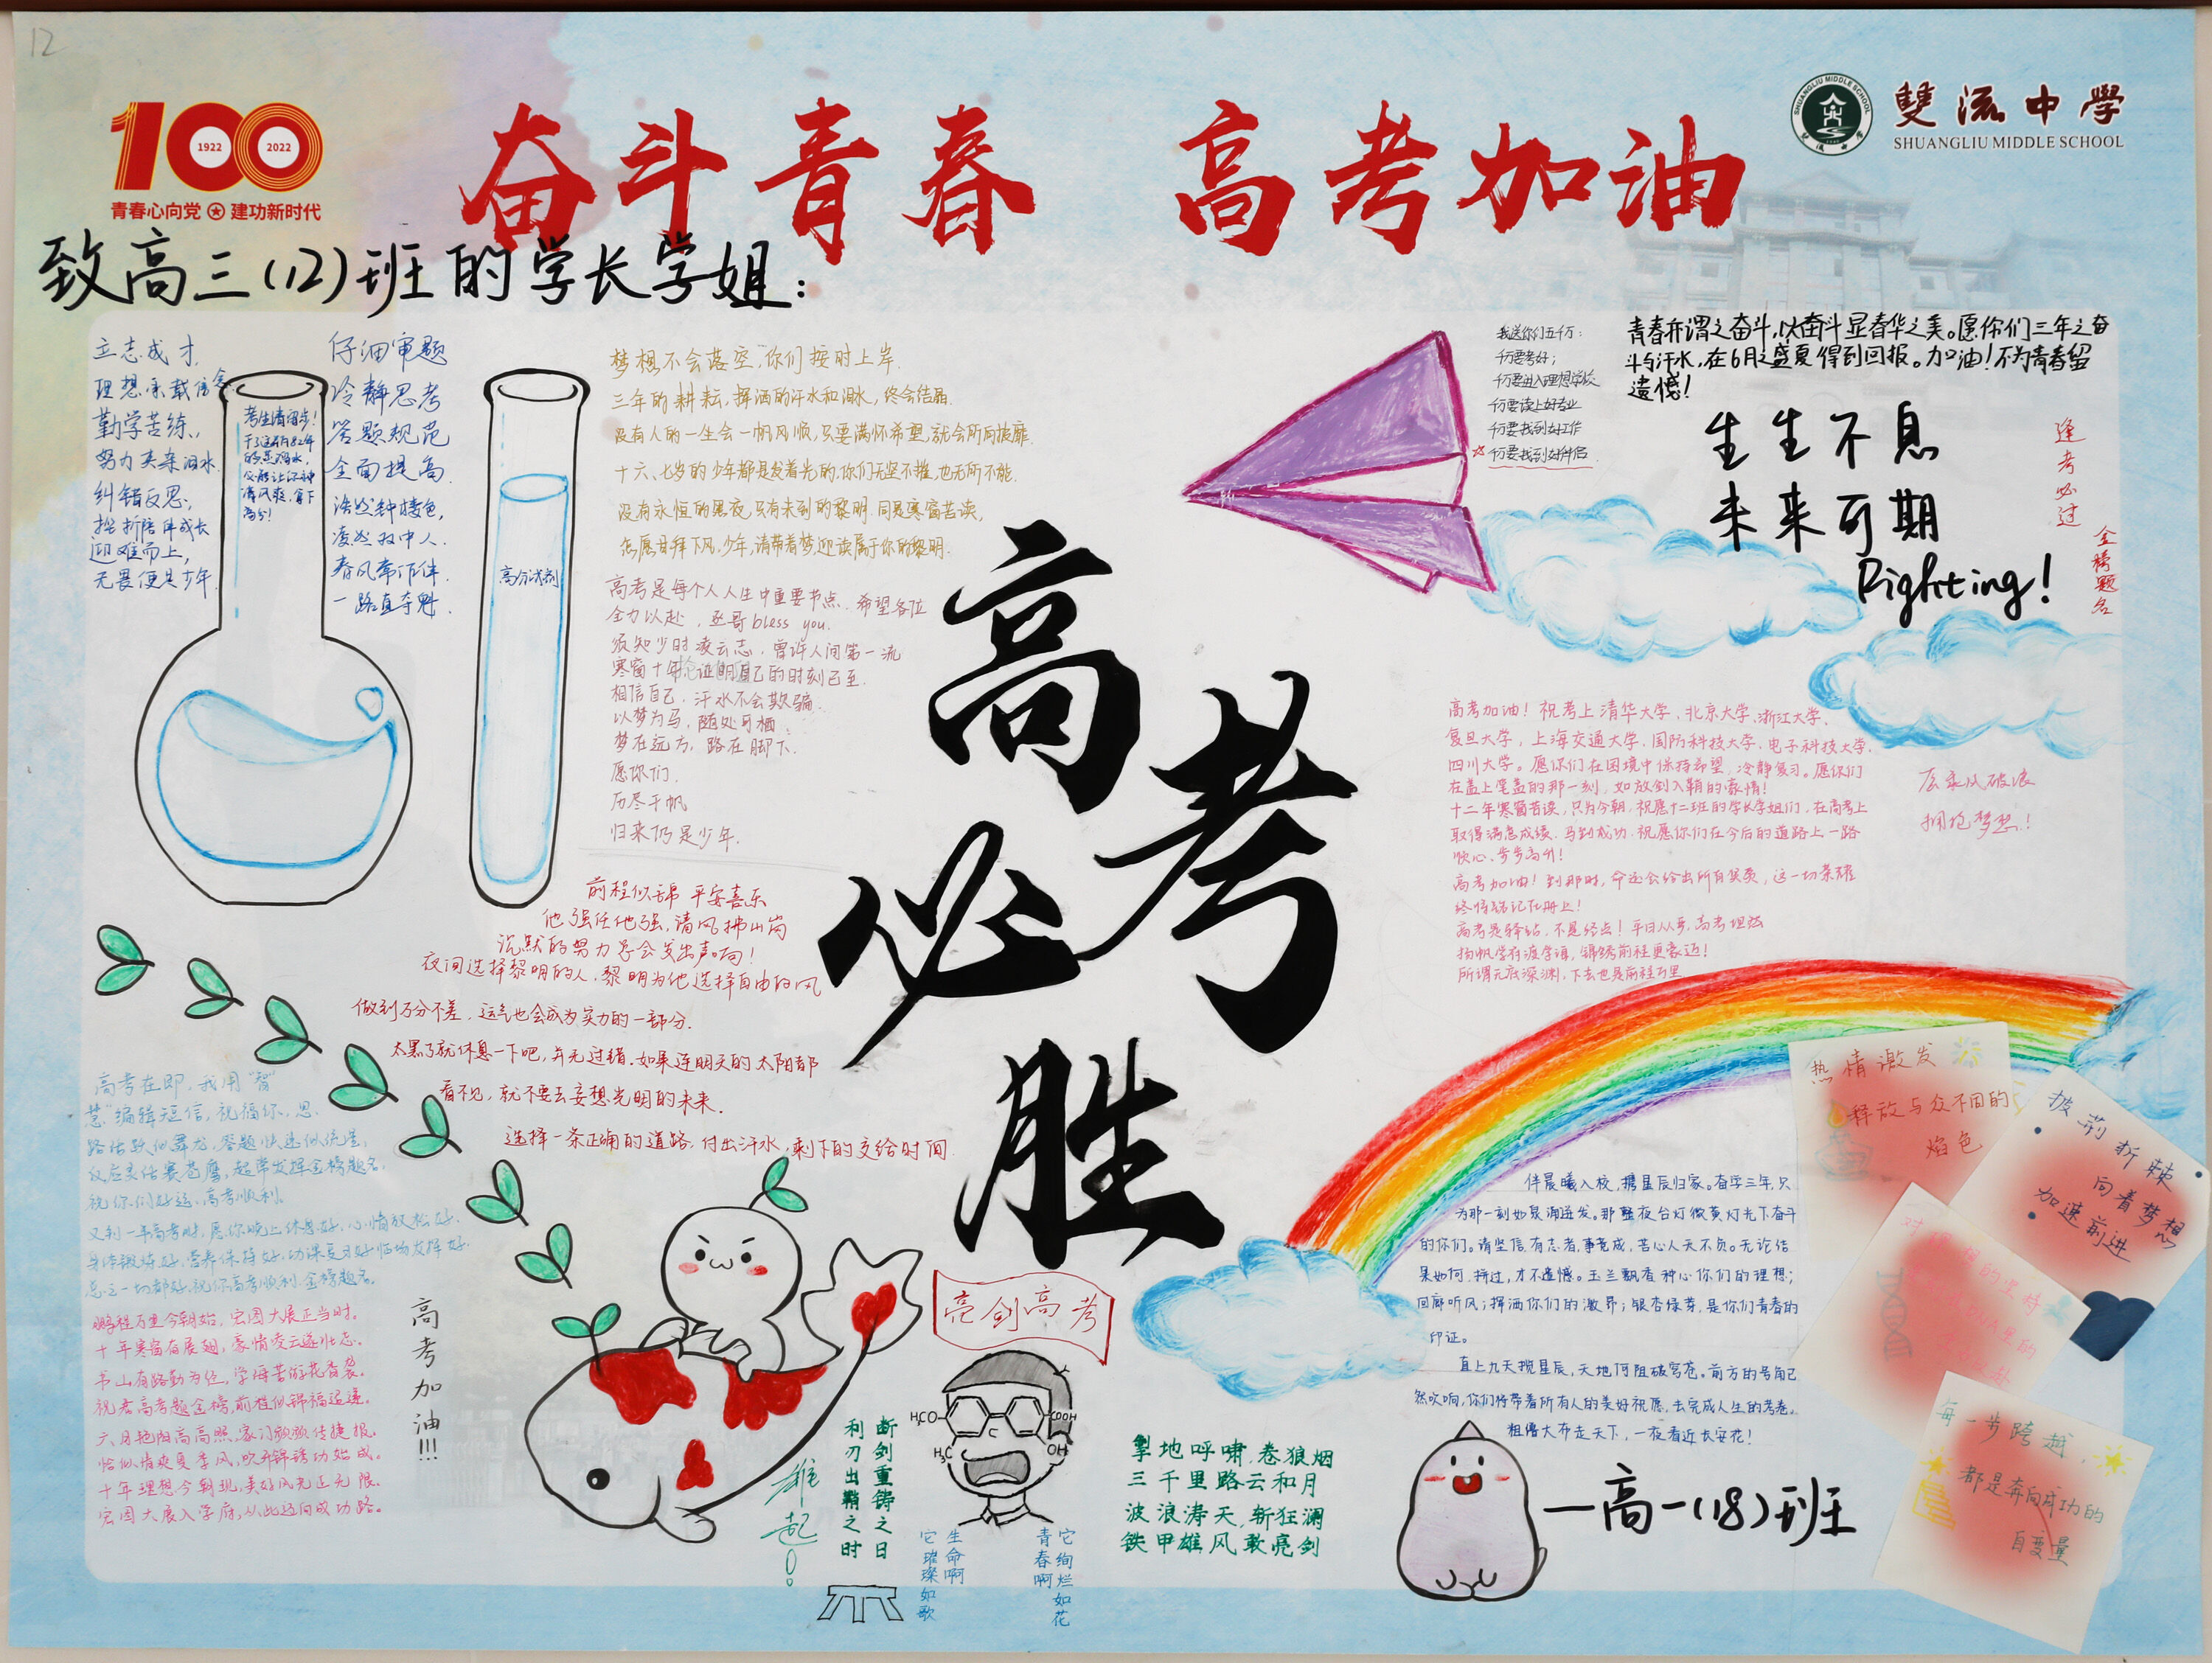 12
100
1922
2022
青春心向党 建功新时代
奋斗青春 高考加油
SHUANGLIU MIDDLE SCHOOL
雙流中學
SHUANGLIU MIDDLE SCHOOL
致高三(12)班的学长学姐:
立志成才,
理想承载信念
勤学苦练,
努力夹杂泪水
纠错反思,
挫折陪伴成长
迎难而上,
无畏便是少年.
考生请留步!
仔细审题
冷静思考
答题规范
全面提高.
春风常作伴.
一路直夺魁.
高分试剂
梦想不会落空,你们按时上岸.
三年的耕耘,挥洒的汗水和泪水,终会结晶.
没有人的一生会一帆风顺,只要满怀希望,就会所向披靡.
十六、七岁的少年都是发着光的,你们无坚不摧,也无所不能.
没有永恒的黑夜,只有未到的黎明.同是寒窗苦读,
怎愿甘拜下风,少年,请带着梦,迎读属于你的黎明.
高考是每个人人生中重要节点.希望各位
全力以赴,丞哥bless you.
须知少时凌云志,曾许人间第一流
寒窗十年,证明自己的时刻已至.
相信自己,汗水不会欺骗.
以梦为马,随处可栖.
梦在远方,路在脚下.
愿你们,
历尽千帆
归来仍是少年.
前程似锦 平安喜乐
他强任他强,清风拂山岗
沉默的努力总会发出声响!
夜间选择黎明的人,黎明为他选择自由的风
做到万分不差,运气也会成为实力的一部分.
太黑了就休息一下吧,并无过错.如果连明天的太阳都
看不见,就不要去妄想光明的未来.
选择一条正确的道路,付出汗水,剩下的交给时间.
高考必胜
我送你们五千万:
千万要考好;
千万要进入理想学校
千万要读上好专业
千万要找到好工作
千万要找到好伴侣.
青春亦谓之奋斗,以奋斗显春华之美。愿你们三年之奋
斗与汗水,在6月之盛夏得到回报。加油!不为青春留
遗憾!
生生不息
未来可期
Fighting!
逢考必过
金榜题名
高考加油!祝考上清华大学、北京大学、浙江大学、
复旦大学,上海交通大学、国防科技大学、电子科技大学、
四川大学。愿你们在困境中保持希望,冷静复习。愿你们
在盖上笔盖的那一刻,如放剑入鞘的豪情!
十二年寒窗苦读,只为今朝,祝愿十二班的学长学姐们,在高考上
取得满意成绩,马到成功.祝愿你们在今后的道路上一路
顺心、步步高升!
高考加油!到那时,命运会给出所有奖项,这一切荣耀
终将铭记在册上!
高考是驿站,不是终点!平日从容,高考坦然
扬帆学府渡学海,锦绣前程更豪迈!
所谓无底深渊,下去也是前程万里
乘风破浪
拥抱梦想!
高考在即,我用"智
慧"编辑短信,祝福你,思
路活跃似舞龙,答题快速似流星,
反应灵活赛苍鹰,超常发挥金榜题名.
祝你们好运,高考顺利.
又到一年高考时,愿你晚上休息好,心情放松好.
身体锻炼好,营养保持好,功课复习好,临场发挥好.
总之一切都好,祝你高考顺利,金榜题名.
鹏程万里今朝始,宏图大展正当时.
十年寒窗在展翅,豪情凌云遂壮志.
书山有路勤为径,学海苦游花香袭.
祝君高考题金榜,前程似锦福运递.
六月艳阳高高照,家门频频传捷报.
恰似情爽夏季风,吹开锦绣功始成.
十年理想今朝现,美好风光正无限.
宏图大展入学府,从此迈向成功路。
高考加油!!!
亮剑高考
H₃CO
COOH
H₃C
OH
雄起!
断剑重铸之日
利刃出鞘之时
生命啊
它璀璨如歌
青春啊
它绚烂如花
掣地呼啸,卷狼烟
三千里路云和月
波浪涛天,斩狂澜
铁甲雄风敢亮剑
伴晨曦入校,携星辰归家。奋学三年,只
为那一刻如泉涌迸发。那盏夜台灯微黄灯光下奋斗
的你们。请坚信,有志者,事竟成,苦心人天不负。无论结
果如何,拼过,才不遗憾。玉兰飘香种心你们的理想;
回廊听风;挥洒你们的激昂;银杏绿芽,是你们青春的
印证。
直上九天揽星辰,天地何阻破穹苍。前方的号角已
然吹响,你们将带着所有人的美好祝愿,去完成人生的考卷。
粗缯大布走天下,一夜看近长安花!
—高一(18)班
热情激发
释放与众不同的
焰色
披荆斩棘
向着梦想
加速前进
每一步跨越,
都是奔向成功的
自变量